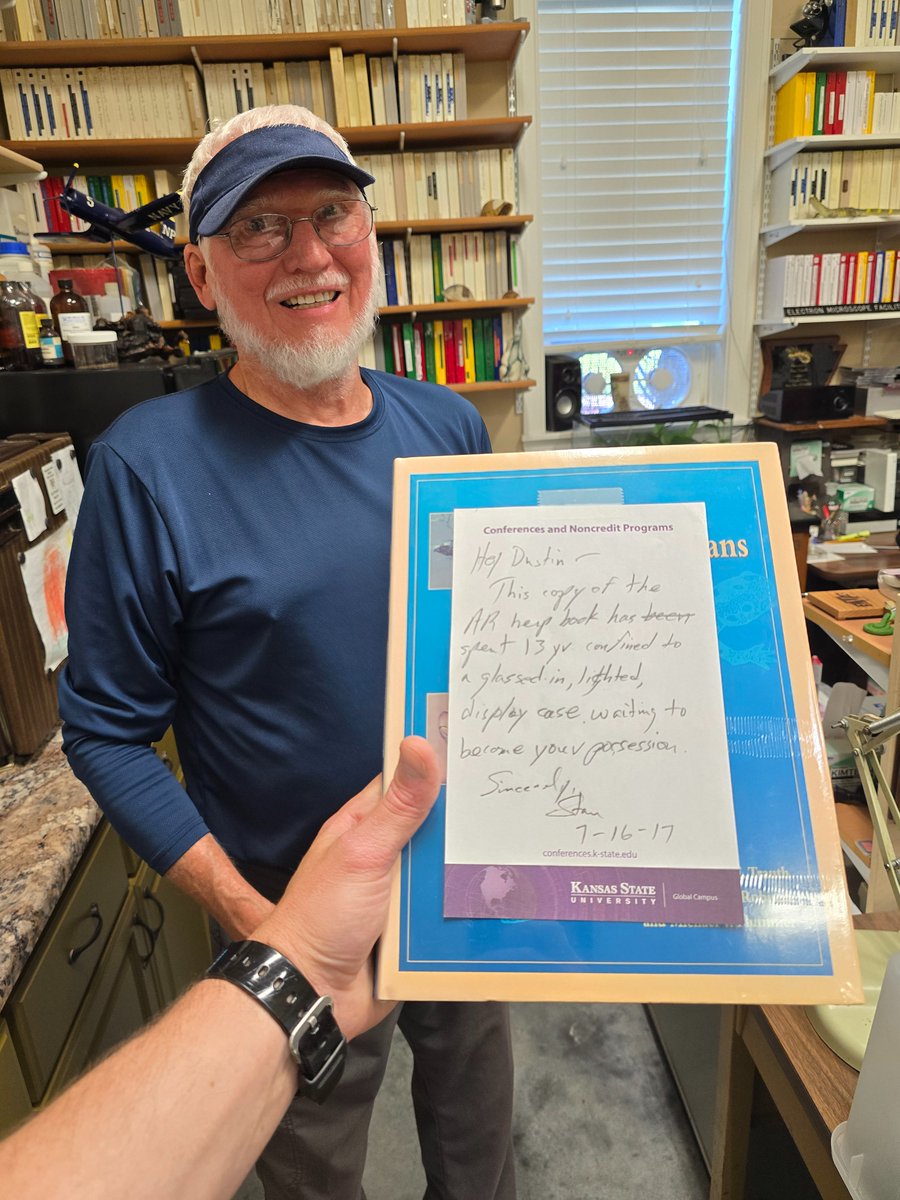 NAVY
ELECTRON MICROSCOPE FACILITY
Conferences and Noncredit Programs
Hey Dustin –
This copy of the
AR herp book has been
spent 13 yr confined to
a glassed-in, lighted,
display case waiting to
become your possession.
Sincerely,
Stan
7-16-17
conferences.k-state.edu
KANSAS STATE
UNIVERSITY
Global Campus
ans
Trauth
and Michael